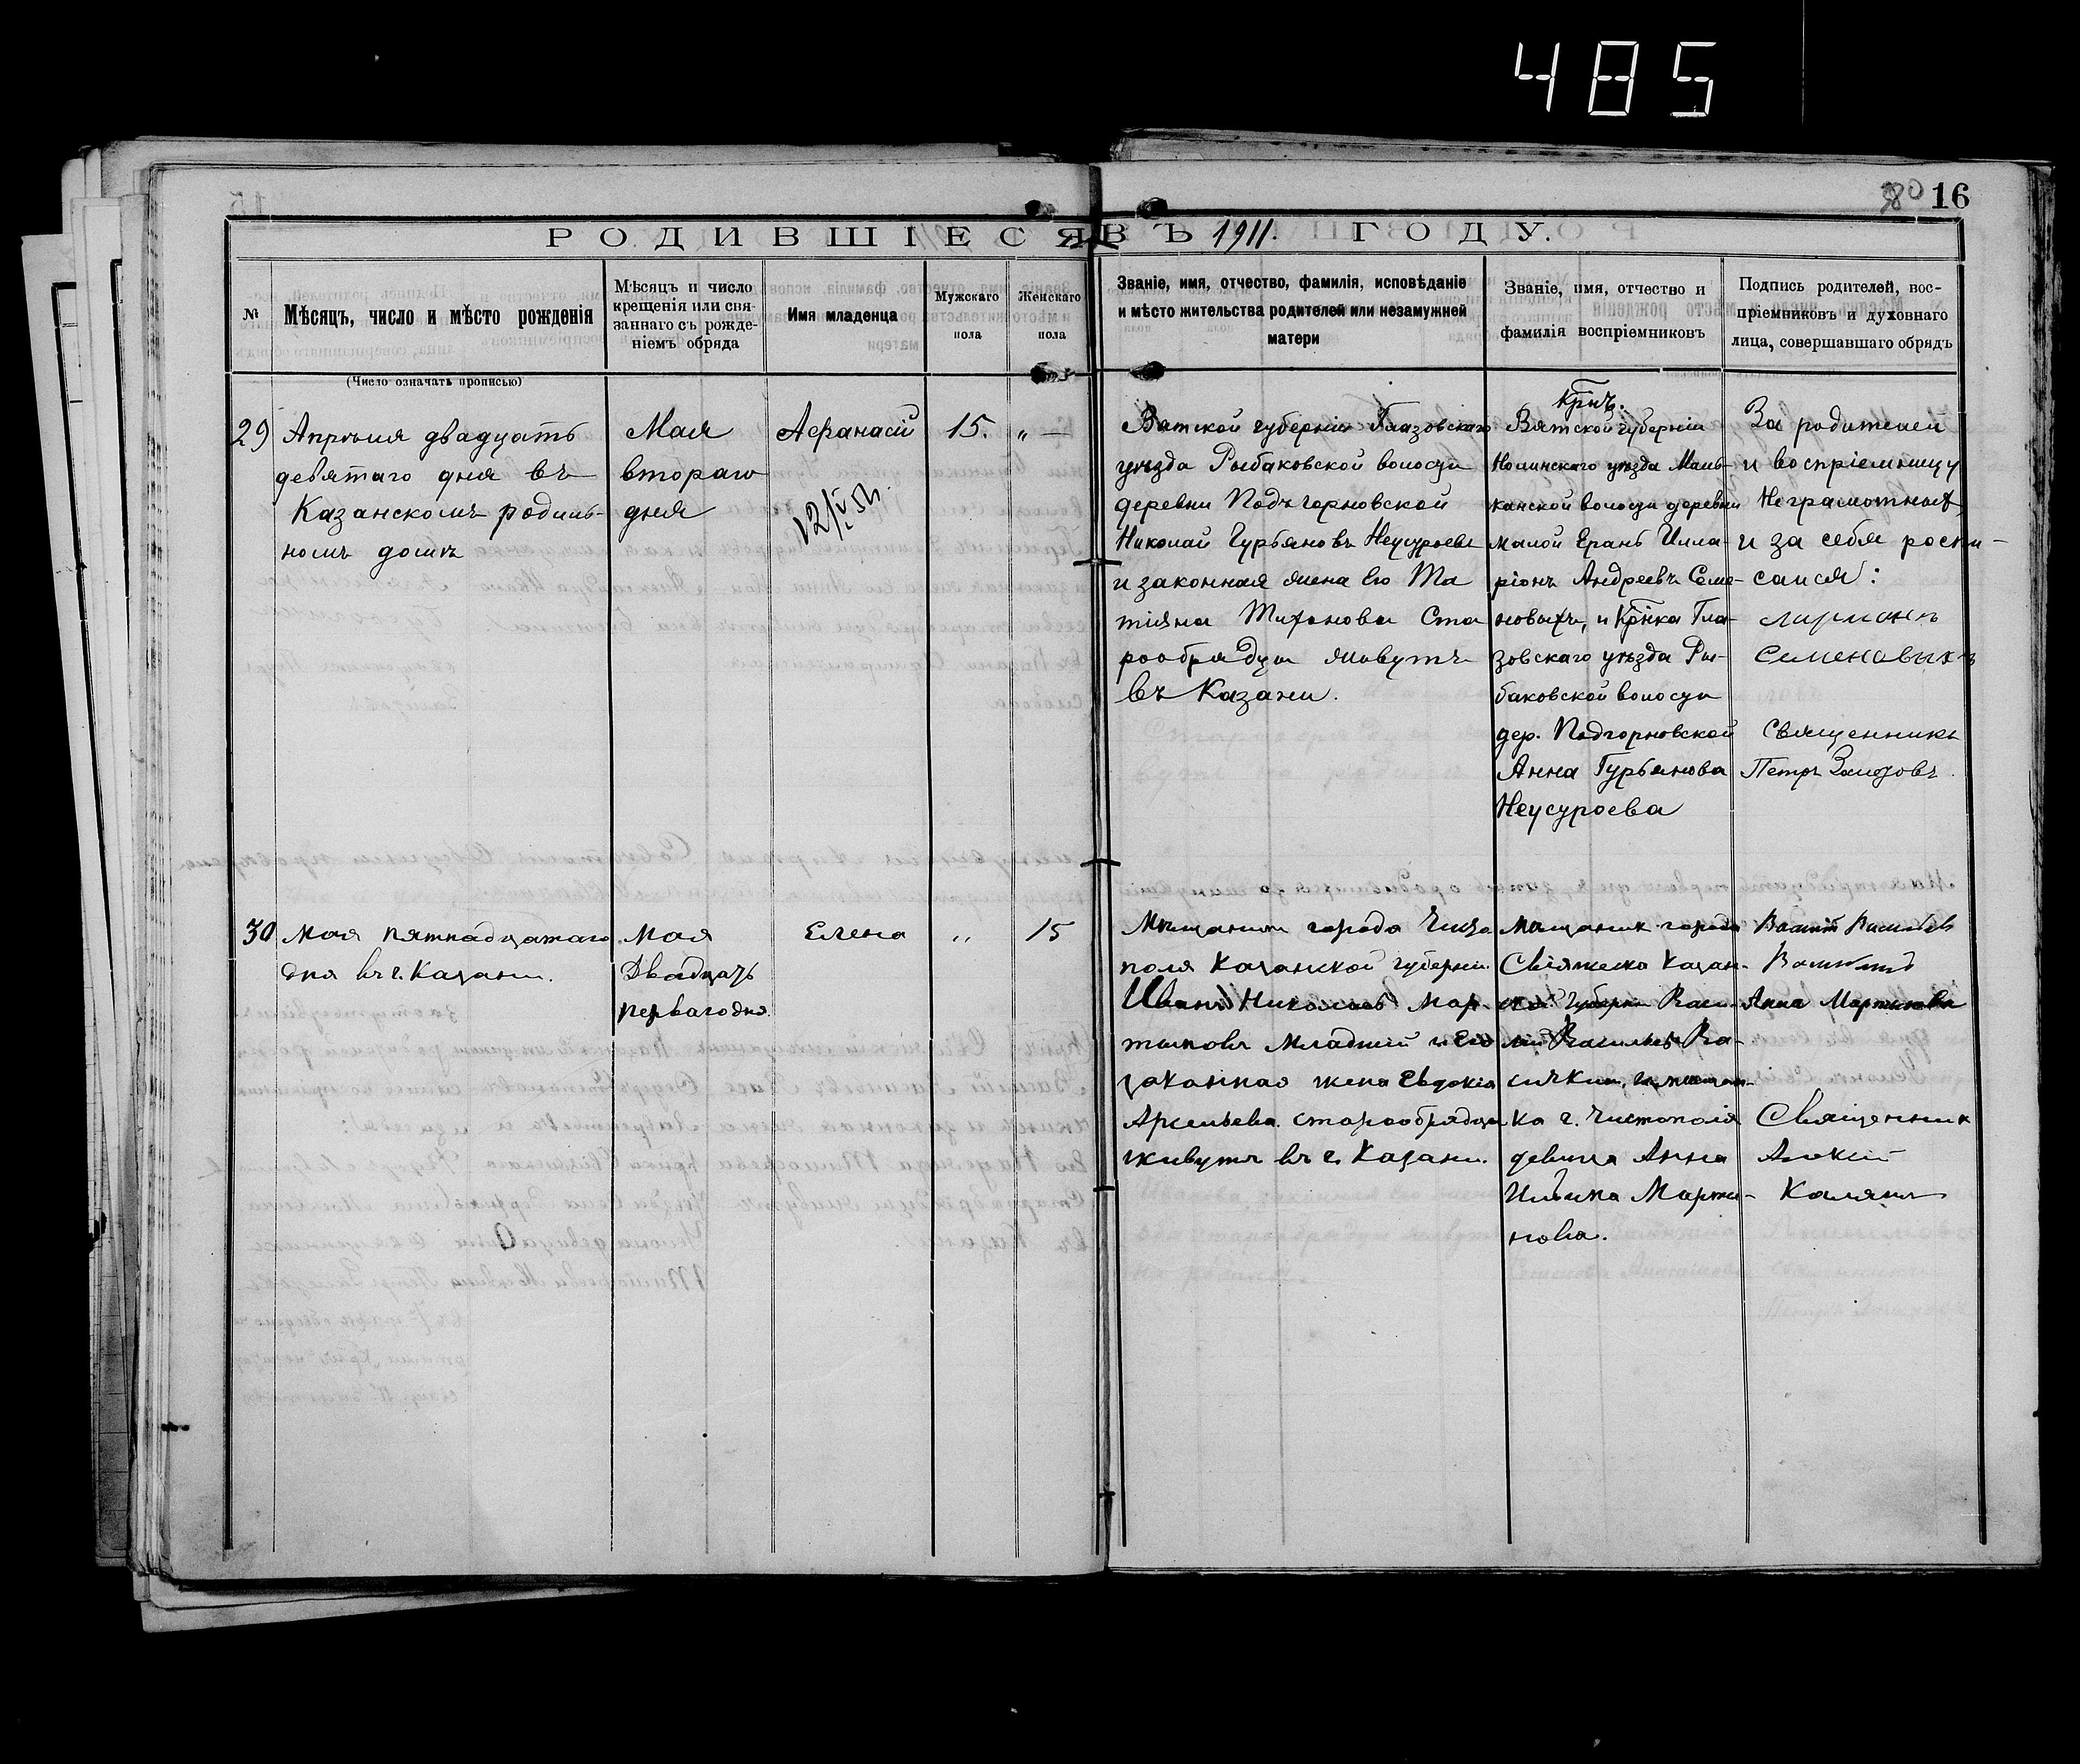 485
80 16
РОДИВШІЕСЯ ВЪ 1911. ГОДУ.
№
Мѣсяцъ, число и мѣсто рожденія
(Число означать прописью)
Мѣсяцъ и число
крещенія или свя-
заннаго съ рожде-
ніемъ обряда
Имя младенца
Мужскаго
пола
Женскаго
пола
Званіе, имя, отчество, фамилія, исповѣданіе
и мѣсто жительства родителей или незамужней
матери
Званіе, имя, отчество и
фамилія воспріемниковъ
Подпись родителей, вос-
пріемниковъ и духовнаго
лица, совершавшаго обрядъ
29
Апрѣля двадцать
девятаго дня въ
Казанскомъ родиль-
номъ домѣ
Мая
второго
дня
Афанасій
12/V 54
15.
" —
Вятской губерніи Глазовскаго
уѣзда Рыбаковской волости
деревни Подъгорновской
Николай Гурьяновъ Неусуроевъ
и законная жена его Та
тіяна Тихонова Ста
рообрядцы живутъ
въ Казани.
Крнъ.
Вятской губерніи
Нолинскаго уѣзда Маль-
канской волости деревни
малой Ерань Илла-
ріонъ Андреевъ Семе-
новыхъ, и Крнка Гла-
зовскаго уѣзда Ры-
баковской волости
дер. Подгорновской
Анна Гурьянова
Неусуроева
За родителей
и воспріемницу
Неграмотныхъ
и за себя роспи-
сался:
Семеновыхъ
Священникъ
Петръ Залетовъ.
30
Мая пятнадцатаго
дня въ г. Казани.
Мая
Двадцать
перваго дня.
Елена
"
15
Мѣщанинъ города Чисто
поля Казанской губерніи
Иванъ Николаевъ Мар-
тыновъ Младшій и его
законная жена Евдокія
Арсеньева. старообрядцы
живутъ въ г. Казани.
мѣщанинъ города
Свіяжска Казан-
ской губерніи Васи-
лій Васильевъ Ва-
сичкин, и мѣщан-
ка г. Чистополя
девица Анна
Ильина Марты-
нова.
Василій Васильев
Анна Мартынова
Священник
Алексій
Калягин